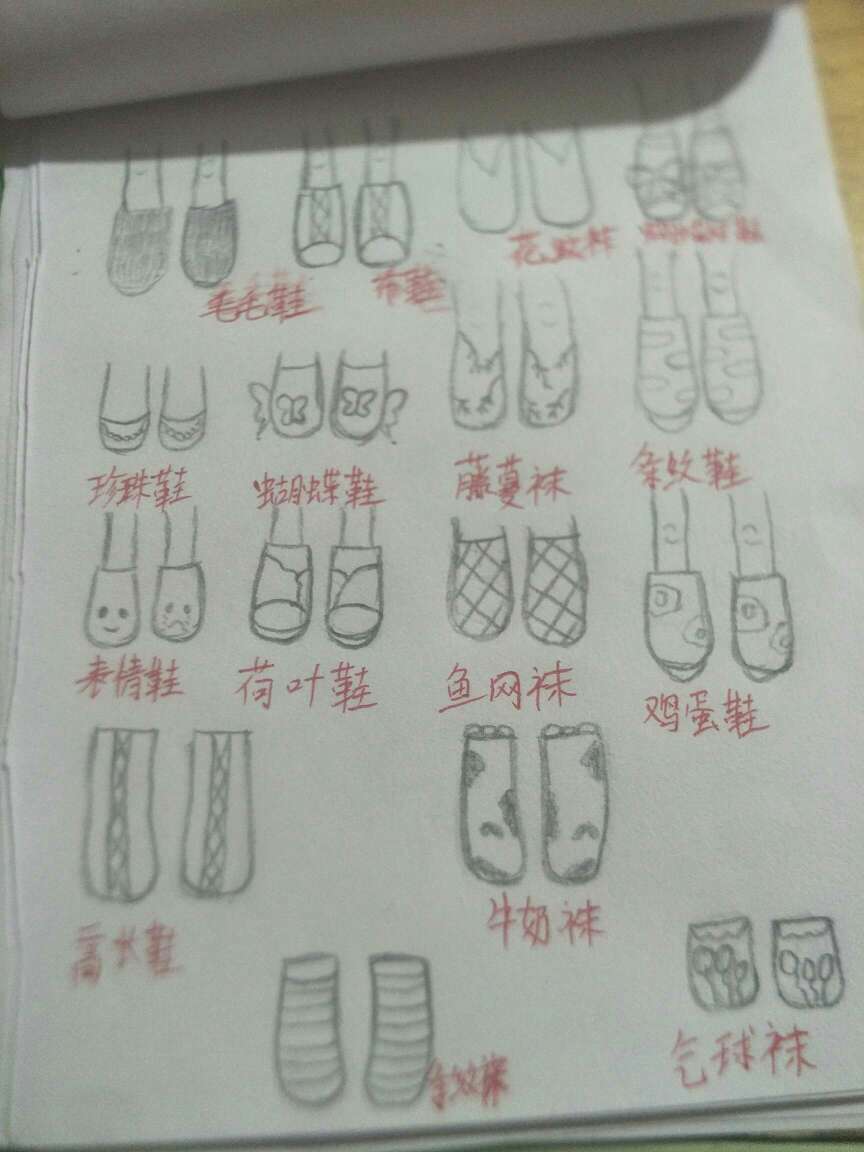 毛毛鞋 布鞋
珍珠鞋 蝴蝶鞋 藤蔓袜 条纹鞋
表情鞋 荷叶鞋 鱼网袜 鸡蛋鞋
高水鞋 牛奶袜
条纹袜 气球袜